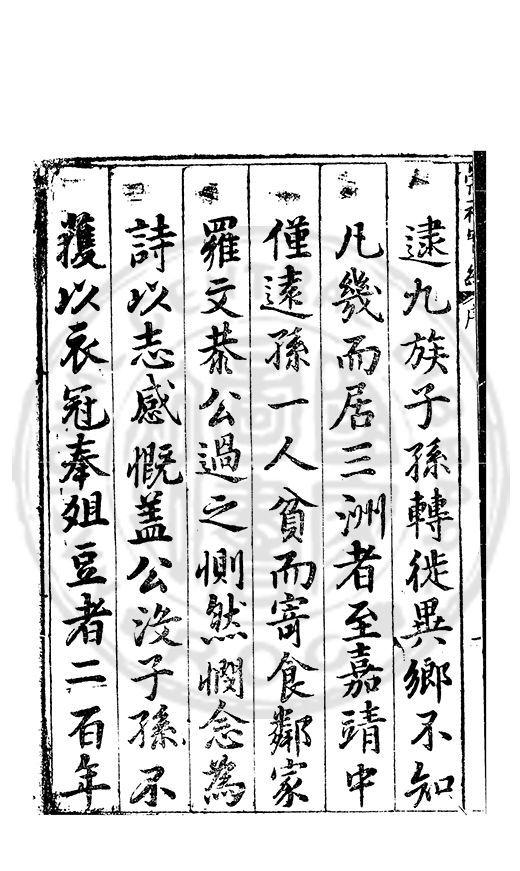 逮九族子孫轉徙異鄉不知
凡幾而居三洲者至嘉靖中
僅遠孫一人貧而寄食鄰家
羅文恭公過之惻然憫念為
詩以志感慨蓋公沒子孫不
獲以衣冠奉俎豆者二百年